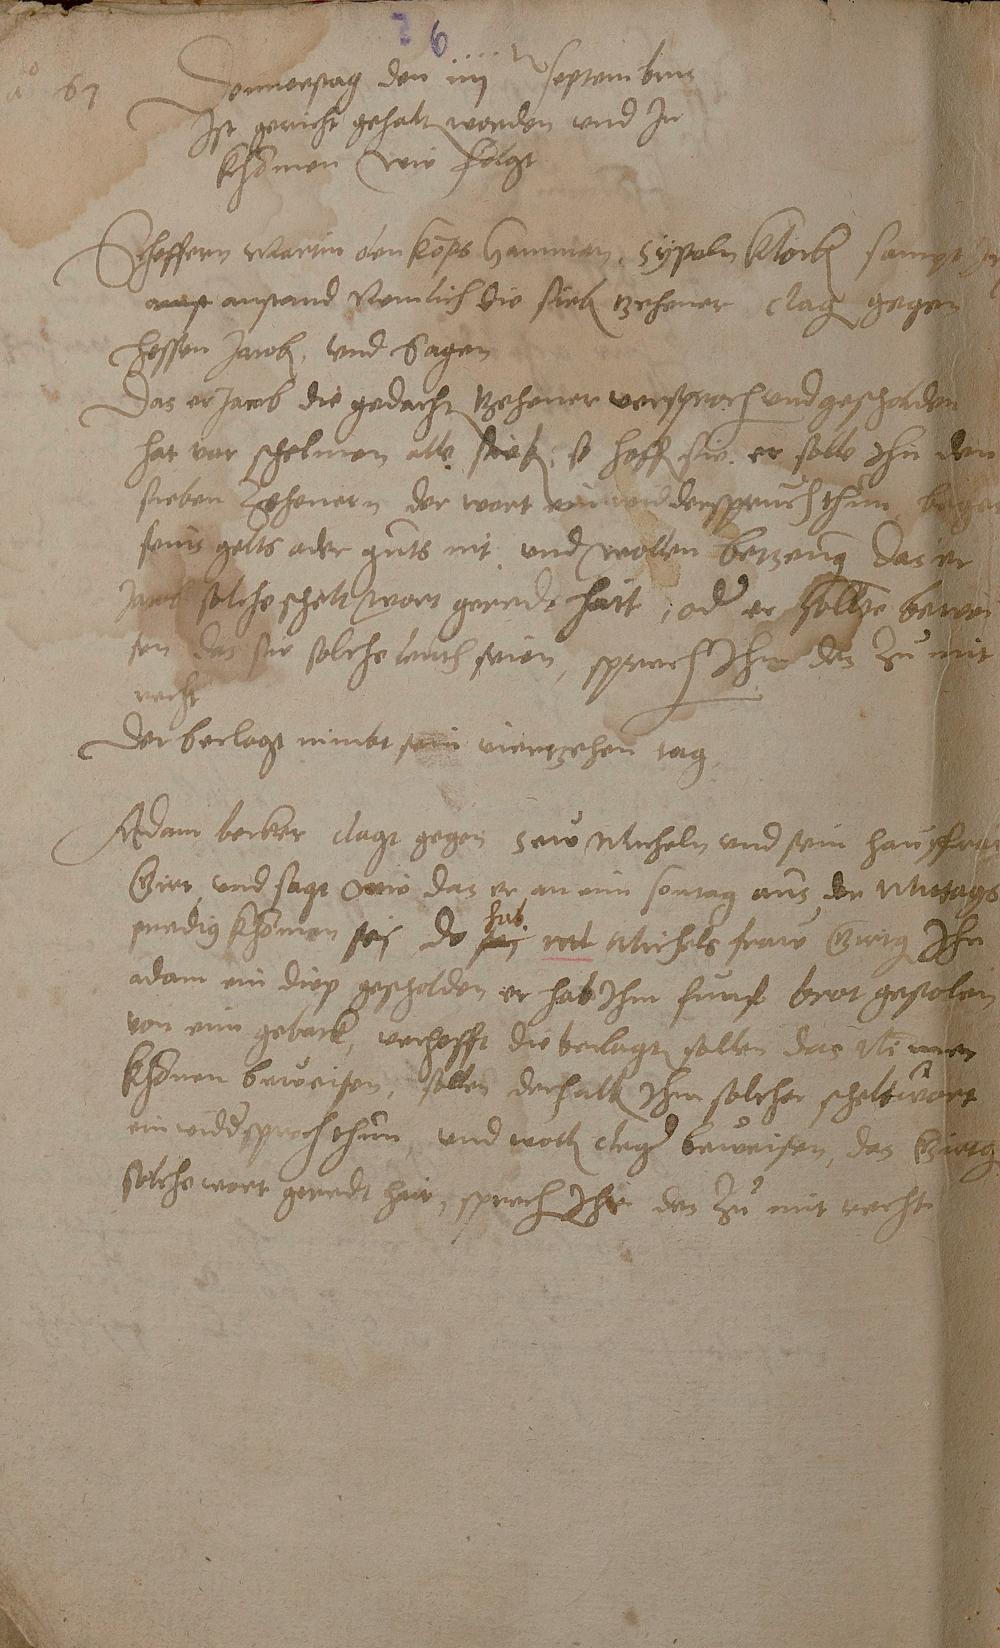 26
a͞o 67
Donnerstag den iiij Septembris
Ist gericht gehalt worden und In
khomen wie folgt
Scheffern Martin den kops hamman, Sypeln Klock sampt
anstand Nemlich die sieb zehener clag gegen
hessen Jacob, und sagen
Das er Jacob die gedacht zehener versproch und gescholden
hat vor schelmen alle sieb, so hoff sie er solle Ihn den
sieben Zehenern der wort ein widderspruch thun, beger
seins gelts oder guts nit und wollen betzeug das er
Jacob solche schelt wort geredt hatt, oder er sollte bewei
sen das sie solche leuth seien, sprech Ihm das Zu mit
recht
Der beclagt nimbt sein viertzehen tag
Adam becker clagt gegen Micheln und sein hausfraw
und sagt wie das er an eim sontag aus der Mittags
predig khomen sei do hab Michels fraw Ihn
adam ein diep gescholden er hab Ihm funf brot gestolen
von eim geback, verhofft die beclagt sollen das
khonen beweisen, sollen derhalb Ihm solcher scheltwort
ein widdersproch thun, und woll cleger beweisen, das
solche wort geredt hab, sprech Ihr das Zu mit recht